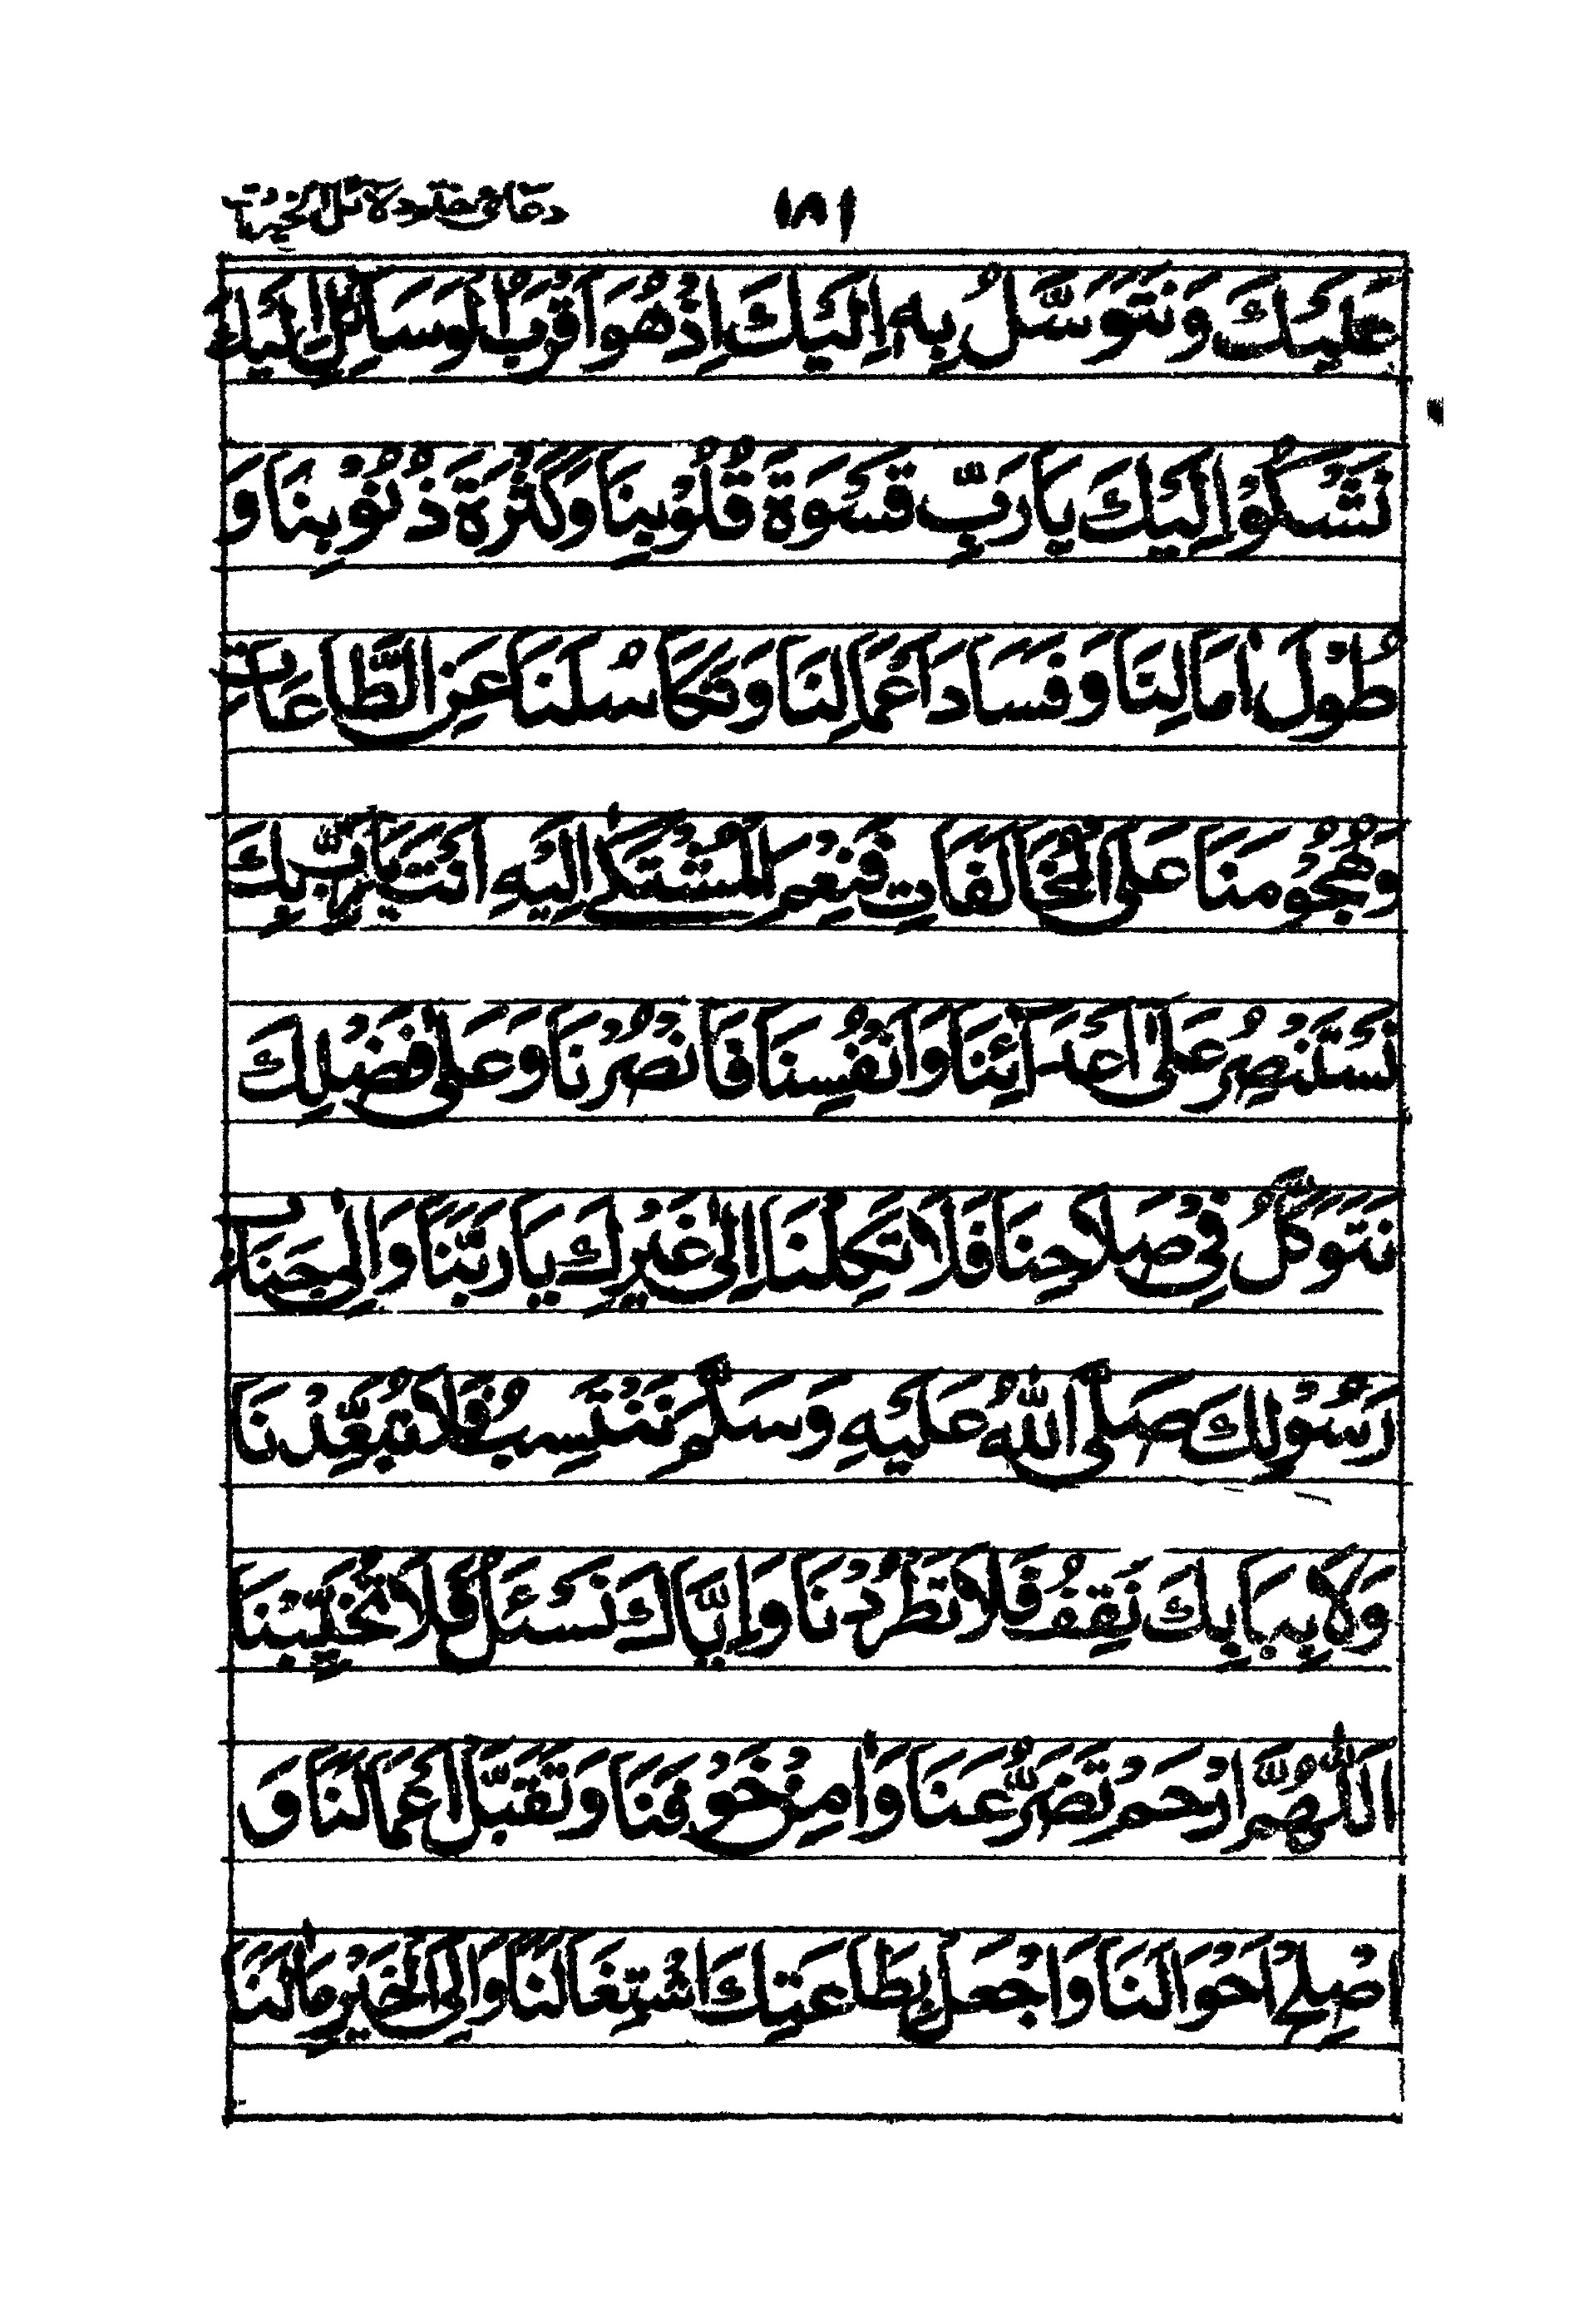 ١٨١
دعائے ختم دلائل الخيرات
عَلَيْكَ وَنَتَوَسَّلُ بِهٖ اِلَيْكَ اِذْ هُوَ اَقْرَبُ الْوَسَائِلِ اِلَيْكَ
نَشْكُوْ اِلَيْكَ يَا رَبِّ قَسْوَةَ قُلُوْبِنَا وَكَثْرَةَ ذُنُوْبِنَا وَ
طُوْلَ اٰمَالِنَا وَفَسَادَ اَعْمَالِنَا وَتَكَاسُلَنَا عَنِ الطَّاعَاتِ
وَهُجُوْمَنَا عَلَى الْمُخَالَفَاتِ فَنِعْمَ الْمُشْتَكٰى اِلَيْهِ اَنْتَ يَا رَبِّ بِكَ
نَسْتَنْصِرُ عَلٰى اَعْدَائِنَا وَاَنْفُسِنَا فَانْصُرْنَا وَعَلٰى فَضْلِكَ
نَتَوَكَّلُ فِيْ صَلَاحِنَا فَلَا تَكِلْنَا اِلٰى غَيْرِكَ يَا رَبَّنَا وَاِلٰى جَنَابِ
رَسُوْلِكَ صَلَّى اللّٰهُ عَلَيْهِ وَسَلَّمَ نَنْتَسِبُ فَلَا تُبَعِّدْنَا
وَلَا بِبَابِكَ نَقِفُ فَلَا تَطْرُدْنَا وَاِيَّاكَ نَسْئَلُ فَلَا تُخَيِّبْنَا
اَللّٰهُمَّ ارْحَمْ تَضَرُّعَنَا وَاٰمِنْ خَوْفَنَا وَتَقَبَّلْ اَعْمَالَنَا وَ
اَصْلِحْ اَحْوَالَنَا وَاجْعَلْ بِطَاعَتِكَ اشْتِغَالَنَا وَاِلَى الْخَيْرِ مَاٰلَنَا